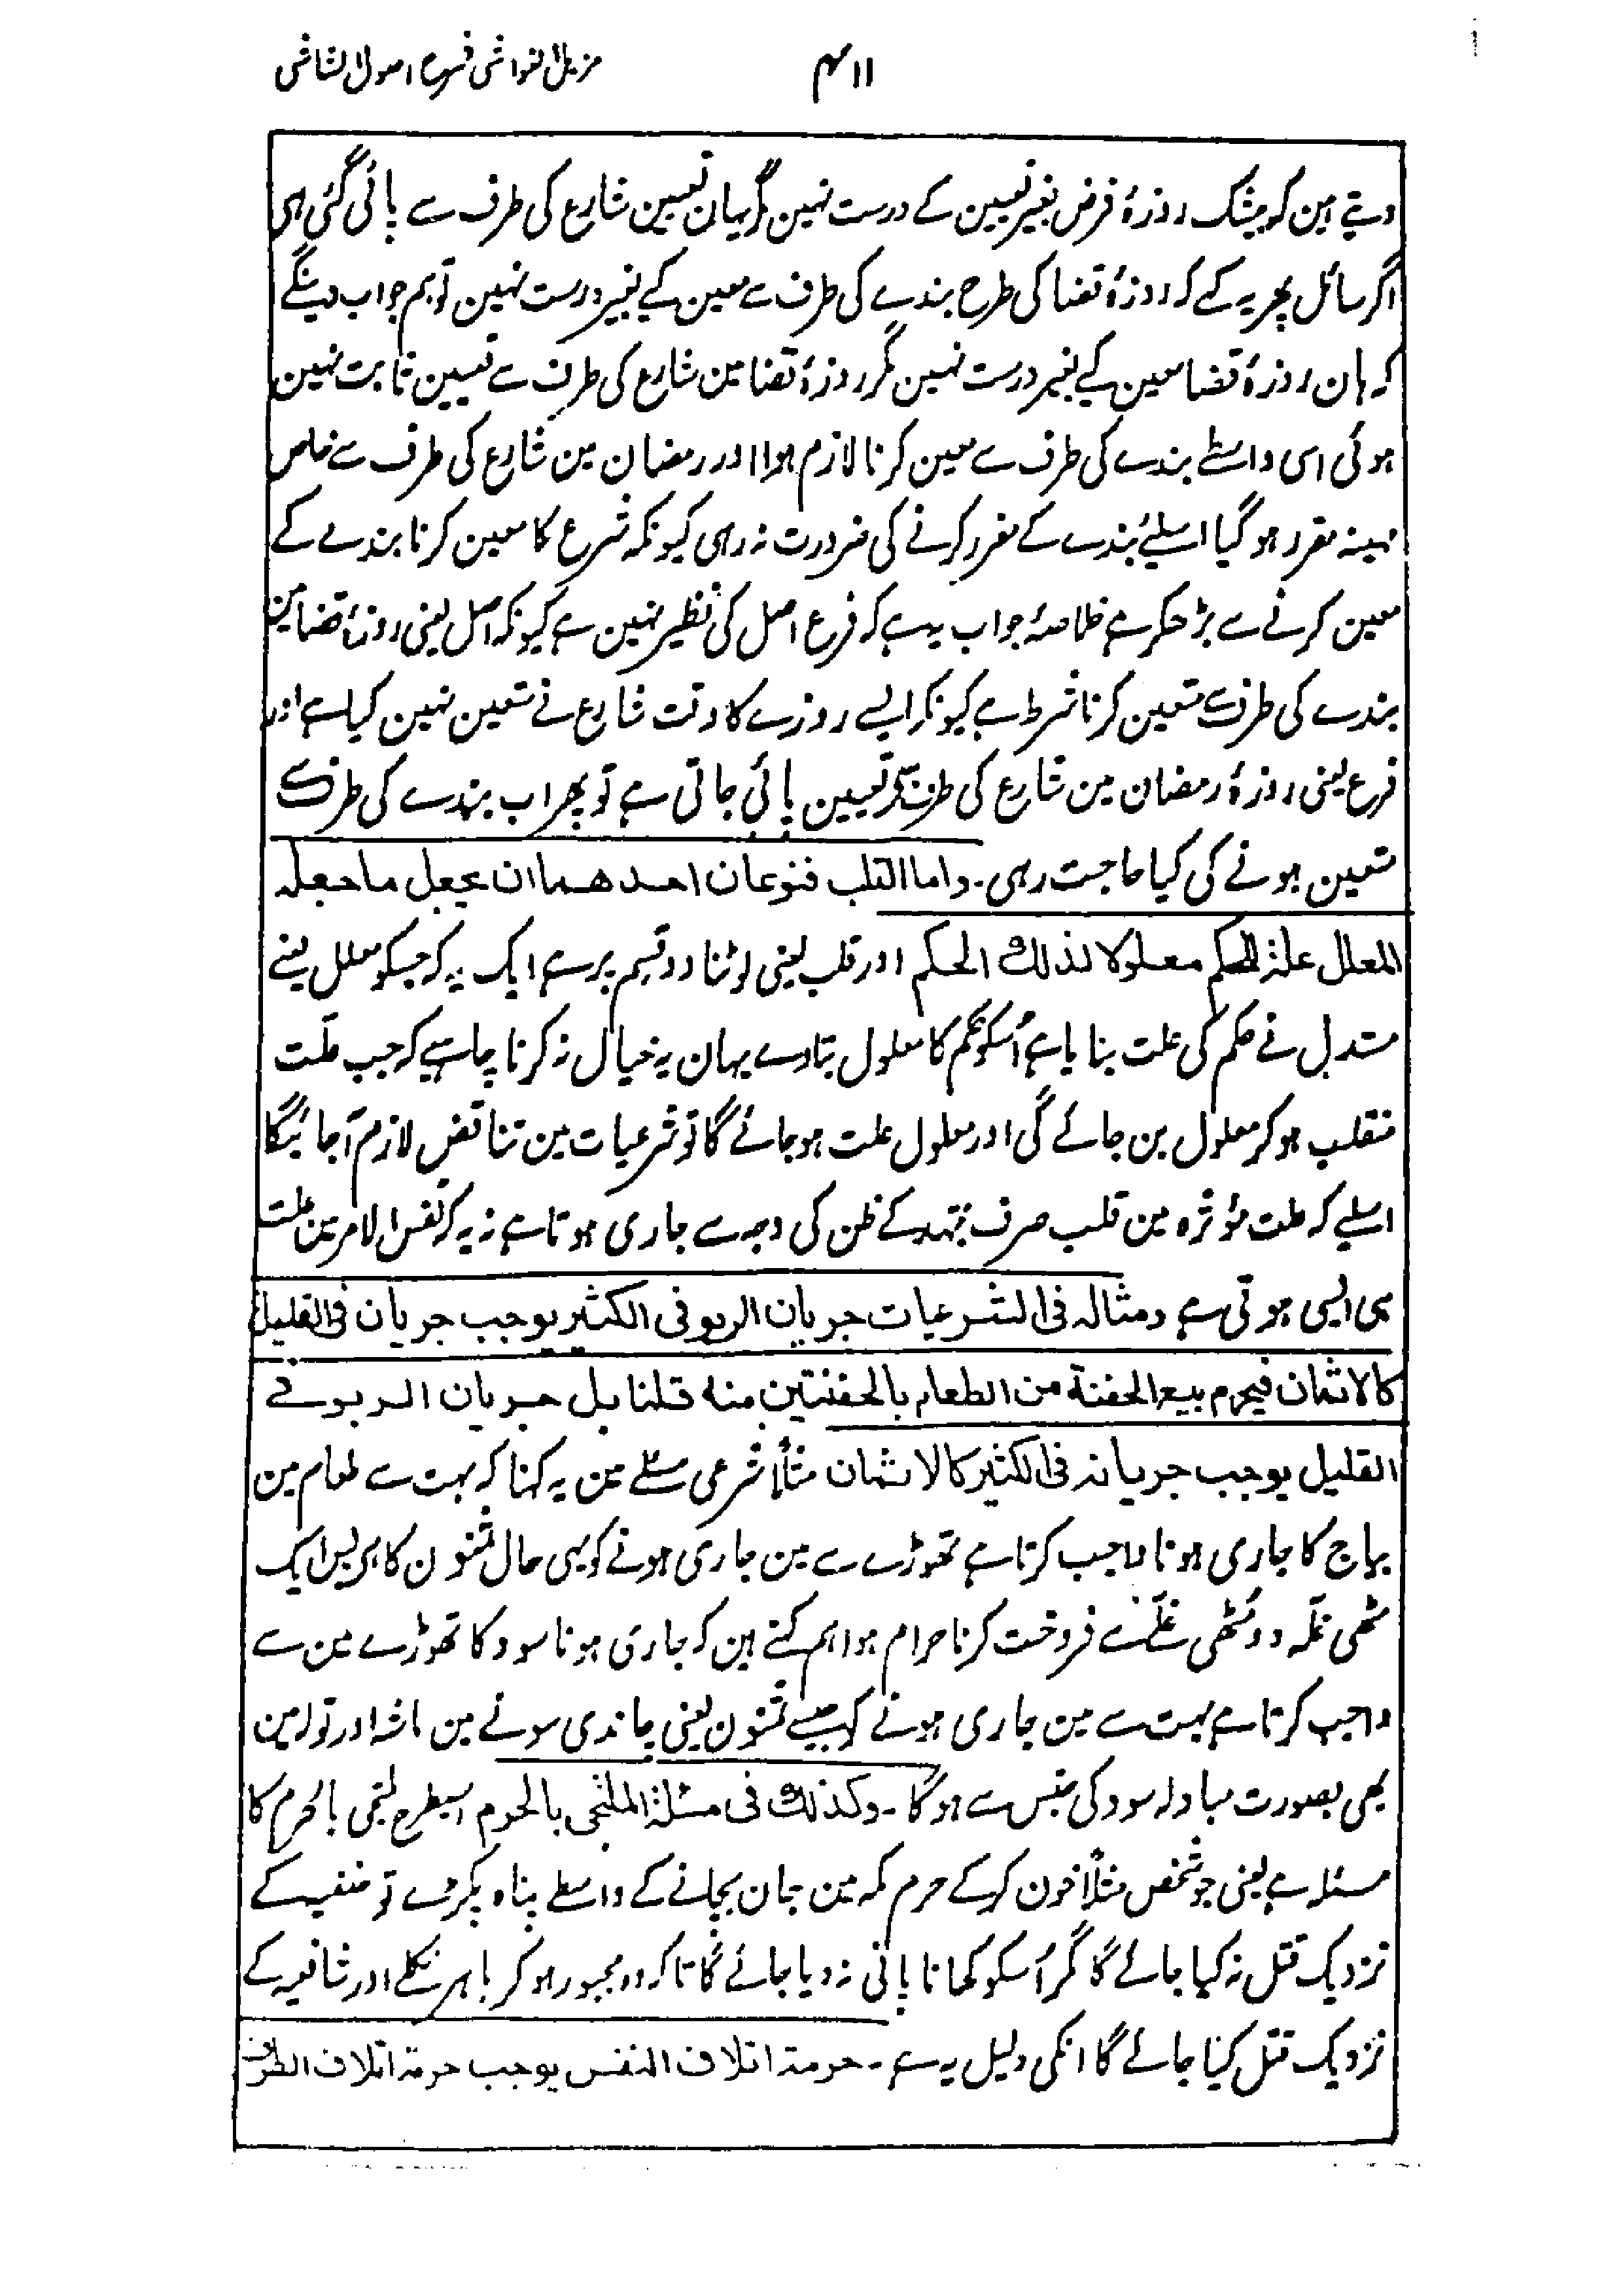 مزیل الغواشی شرح اصول الشاشی
۴۱۱
دیتے ہین کہ بیشک روزۂ فرض بغیر تعیین کے درست نہین مگر یہان تعیین شارع کی طرف سے پائی گئی ہی
اگر سائل پھر یہ کہے کہ روزۂ قضا کی طرح بندے کی طرف سے معین کیے بغیر درست نہین تو ہم جواب دینگے
کہ ہان روزۂ قضا معین کیے بغیر درست نہین مگر روزۂ قضا مین شارع کی طرف سے تعیین ثابت نہین
ہوئی اسی واسطے بندے کی طرف سے معین کرنا لازم ہوا اور رمضان مین شارع کی طرف سے خاص
مہینہ مقرر ہو گیا اسلیے بندے کے مقرر کرنے کی ضرورت نہ رہی کیونکہ شرع کا معین کرنا بندے کے
معین کرنے سے بڑھکر ہے خلاصۂ جواب یہ ہے کہ فرع اصل کی نظیر نہین ہے کیونکہ اصل یعنی روزۂ قضا مین
بندے کی طرف سے متعین کرنا شرط ہے کیونکہ ایسے روزے کا وقت شارع نے متعین نہین کیا ہے اور
فرع یعنی روزۂ رمضان مین شارع کی طرف سے تعیین پائی جاتی ہے تو پھر اب بندے کی طرف سے
متعین ہونے کی کیا حاجت رہی۔ واما القلب فنوعان احدهما ان یجعل ما جعله
المعلل علة للحکم معلولا لذلك الحکم اور قلب یعنی لوٹنا دو قسم پر ہے ایک یہ کہ جسکو معلل یعنے
مستدل نے حکم کی علت بنایا ہے اُسکو حکم کا معلول بتادے یہان یہ خیال نہ کرنا چاہیے کہ جب علّت
منقلب ہو کر معلول بن جائے گی اور معلول علت ہو جائے گا تو شرعیات مین تناقض لازم آجائیگا
اسلیے کہ علت مؤثرہ مین قلب صرف مجتہد کے ظن کی وجہ سے جاری ہوتا ہے نہ یہ کہ نفس الامر مین علت
ہی ایسی ہوتی ہے ومثاله فی الشرعیات جریان الربو فی الکثیر یوجب جریان فی القلیل
کالاثمان فیحرم بیع الحفنة من الطعام بالحفنتین منه قلنا بل جریان الربو فے
القلیل یوجب جریانه فی الکثیر کالاثمان مثلاً شرعی مسئلے مین یہ کہنا کہ بہت سے طعام مین
بیاج کا جاری ہونا واجب کرتا ہے تھوڑے سے مین جاری ہونے کو یہی حال ثمنون کا ہی پس ایک
مٹھی غلّہ دو مٹھی غلّے سے فروخت کرنا حرام ہوا ہم کہتے ہین کہ جاری ہونا سود کا تھوڑے مین سے
واجب کرتا ہے بہت سے مین جاری ہونے کو جیسے ثمنون یعنی چاندی سونے مین ماشہ اور تولہ مین
بھی بصورت مبادلہ سود کی جنس سے ہوگا۔ وکذلك فی مسئلة الملتجی بالحرم اسیطرح ملتجی بالحرم کا
مسئلہ ہے یعنی جو شخص مثلاً خون کرکے حرم مکہ مین جان بچانے کے واسطے پناہ پکڑے تو حنفیہ کے
نزدیک قتل نہ کیا جائے گا مگر اُسکو کھانا پانی نہ دیا جائے گا تاکہ وہ مجبور ہو کر باہر نکلے اور شافعیہ کے
نزدیک قتل کیا جائے گا انکی دلیل یہ ہے۔ حرمة اتلاف النفس یوجب حرمة اتلاف الطرف